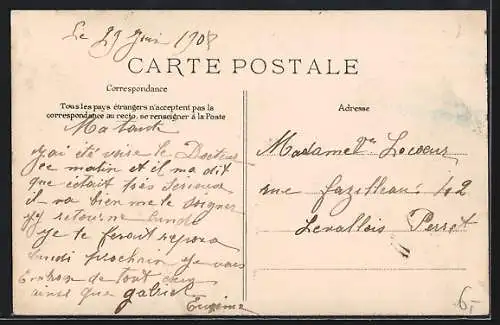 Le 29 Juin 1908
CARTE POSTALE
Correspondance
Tous les pays étrangers n'acceptent pas la
correspondance au recto, se renseigner à la Poste
Adresse
Ma tante
j'ai été voire le Docteur
ce matin et il ma dit
que cétait très serieux
il va bien me le soigner
j'y retourne lundi
je te ferait reponse
lundi prochain je vous
embrase de tout cœur
ainsi que gabriel
Eugénie
Madame Vve Locoeur
rue fazilleau 42
Levallois Perret
6,-